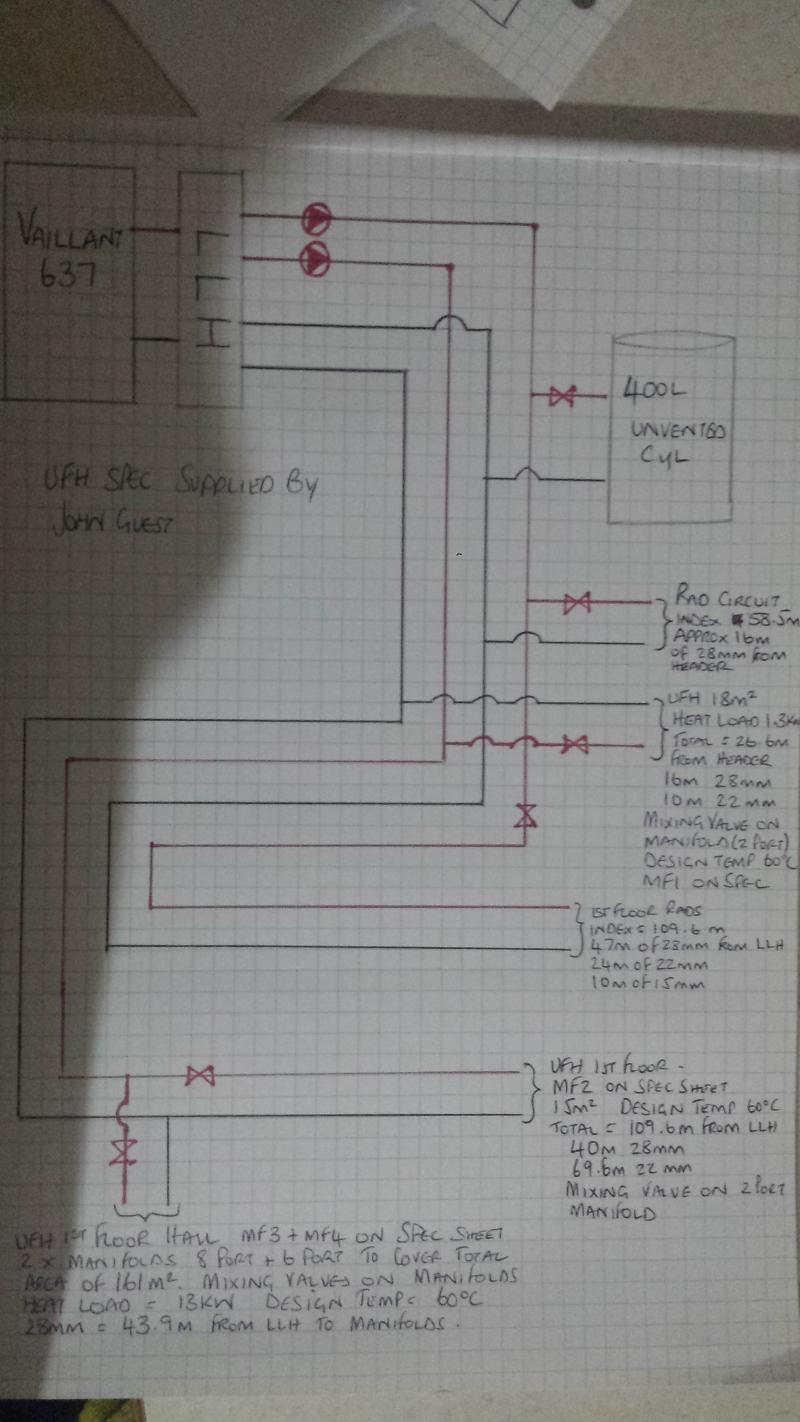 VAILLANT
637
L
L
H
400L
UNVENTED
CYL
UFH SPEC SUPPLIED BY
JOHN GUEST
RAD CIRCUIT
INDEX 58.5M
APPROX 16M
OF 28MM FROM
HEADER
UFH 18M²
HEAT LOAD 1.3KW
TOTAL = 26.6M
FROM HEADER
16M 28MM
10M 22MM
MIXING VALVE ON
MANIFOLD (2 PORT)
DESIGN TEMP 60°C
MF1 ON SPEC
1ST FLOOR RADS
INDEX = 109.6 M
47M OF 28MM FROM LLH
24M OF 22MM
10M OF 15MM
UFH 1ST FLOOR -
MF2 ON SPEC SHEET
15M² DESIGN TEMP 60°C
TOTAL = 109.6M FROM LLH
40M 28MM
69.6M 22MM
MIXING VALVE ON 2 PORT
MANIFOLD
UFH 1ST FLOOR HALL MF3 + MF4 ON SPEC SHEET
2 X MANIFOLDS 8 PORT + 6 PORT TO COVER TOTAL
AREA OF 161M². MIXING VALVES ON MANIFOLDS
HEAT LOAD = 13KW DESIGN TEMP = 60°C
28MM = 43.9M FROM LLH TO MANIFOLDS.